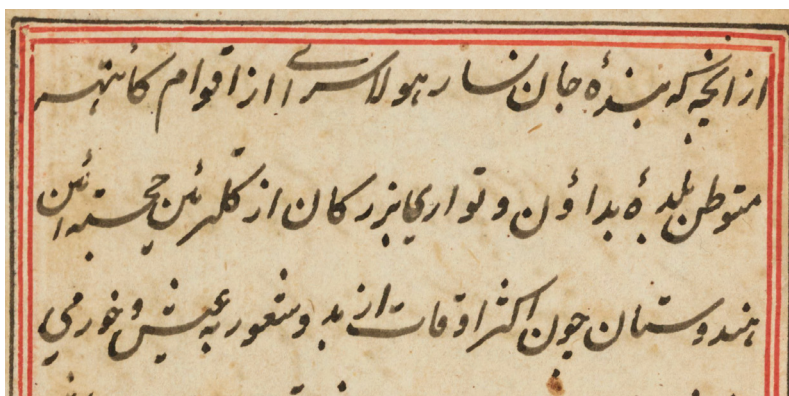 از انجه که بندهٔ جان نسار هولاسراے از اقوام کائتهه
متوطن بلدهٔ بداؤن و تواریٔ بزرکان از کلزمین حجسته ائین
هندوستان جون اکثر اوقات از بدو شعور به عیش و خورمی